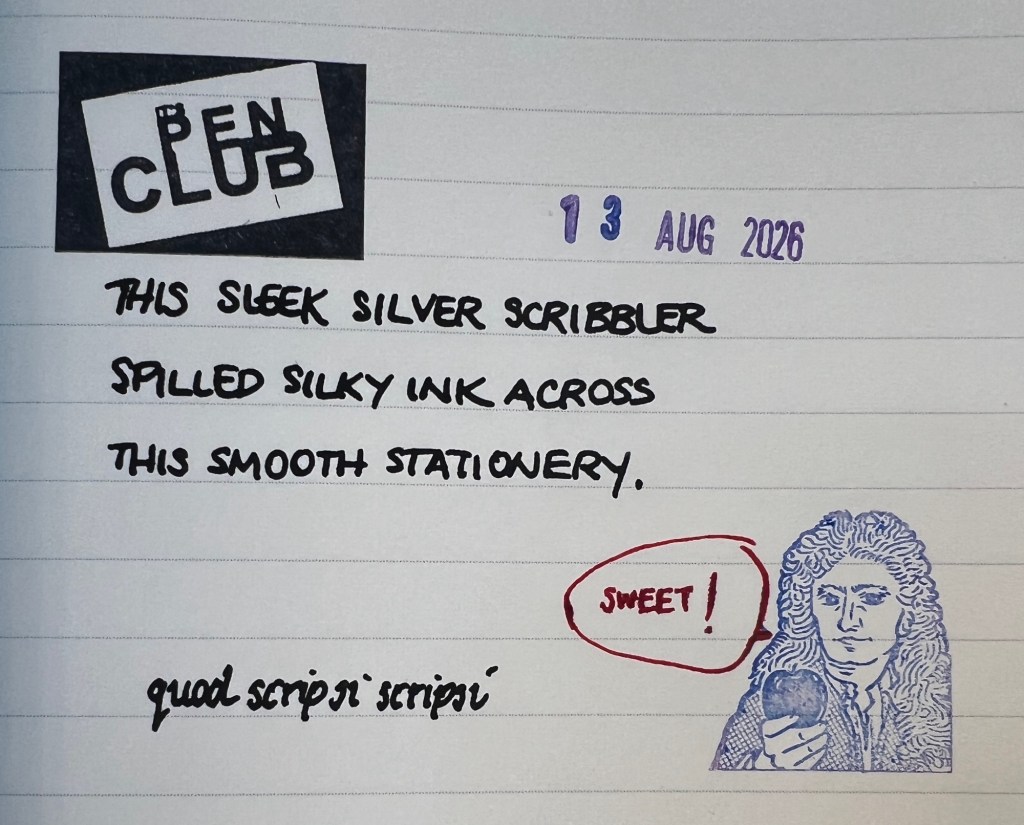 PEN
CLUB
13 AUG 2026
THIS SLEEK SILVER SCRIBBLER
SPILLED SILKY INK ACROSS
THIS SMOOTH STATIONERY.
SWEET!
quod scripsi scripsi